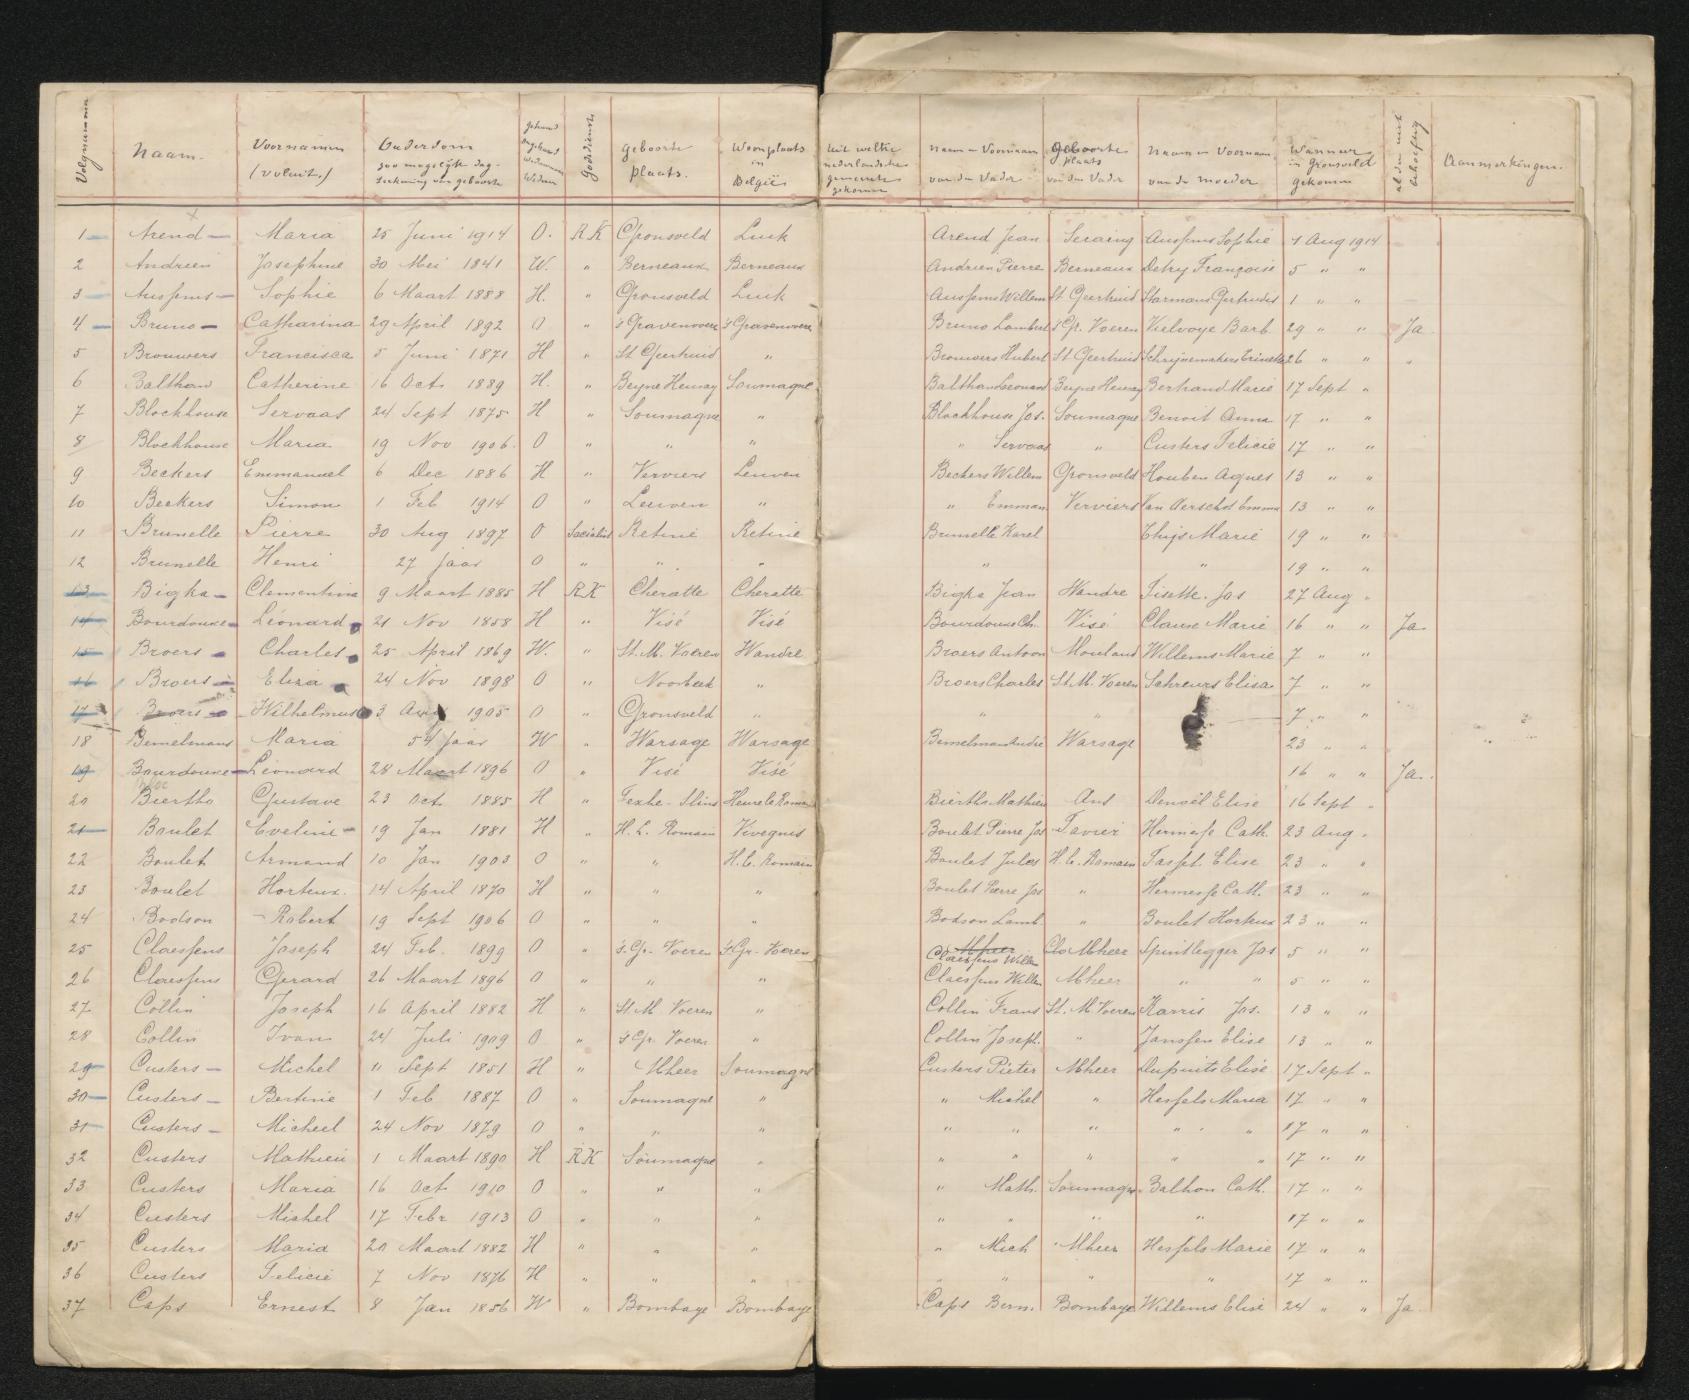 Volgnummer Naam. Voornamen (voluit.) Ouderdom zoo mogelijk dag- teekening van geboorte Gehuwd Ongehuwd Weduwnaar Weduwe Godsdienst Geboorte plaats. Woonplaats in België Uit welke nederlandsche gemeente gekomen Naam en Voornaam van den Vader Geboorte plaats van den Vader Naam en Voornaam van de moeder Wanneer in Gronsveld gekomen al dan niet behoeftig Aanmerkingen.
1 Arend Maria 25 Juni 1914 O. RK Gronsveld Luik Arend Jean Seraing Aussems Sophie 1 Aug 1914
2 Andrien Josephine 30 Mei 1841 W. " Berneaux Berneaux Andrien Pierre Berneaux Detry Françoise 5 " "
3 Aussems Sophie 6 Maart 1888 H. " Gronsveld Luik Aussems Willem St Geertruid Starmans Gertrudis 1 " "
4 Bruno Catharina 29 April 1892 O " 's Gravenvoeren 's Gravenvoeren Bruno Lambert 's Gr. Voeren Vielvoye Barb. 29 " " Ja
5 Brouwers Francisca 5 Juni 1871 H " St Geertruid " Brouwers Hubert St Geertruid Schrijnemakers 26 " " "
6 Balthau Catherine 16 Oct 1889 H. " Beyne Heusay Soumagne Balthau Leonard Beyne Heusay Bertrand Marie 17 Sept "
7 Blockhouse Servaas 24 Sept 1875 H " Soumagne " Blockhouse Jos. Soumagne Benoit Anna 17 " "
8 Blockhouse Maria 19 Nov 1906. O " " " " Servaas " Custers Felicie 17 " "
9 Beckers Emmanuel 6 Dec 1886 H " Verviers Leuven Beckers Willem Gronsveld Houben Agnes 13 " "
10 Beckers Simon 1 Feb 1914 O " Leuven " " Emman Verviers Van Aerschot Emma 13 " "
11 Brunelle Pierre 30 Aug 1897 O Socialist Retinie Retinie Brunelle Karel Thijs Marie 19 " "
12 Brunelle Henri 27 jaar O " " " " " 19 " "
13 Bigka Clementina 9 Maart 1885 H RK Cheratte Cheratte Bigka Jean Wandre Lisette. Jos 27 Aug "
14 Bourdouxe Léonard 21 Nov 1858 H " Visé Visé Bourdouxe Ch. Visé Claux Marie 16 " " Ja
15 Broers Charles 25 April 1869 W. " St. M. Voeren Wandre Broers Antoon Mouland Willems Marie 7 " "
16 Broers Eliza 24 Nov 1898 O " Noorbeek " Broers Charles St M. Voeren Schreurs Elisa 7 " "
17 Broers Wilhelmus 3 Aug 1905 O " Gronsveld " " " 7 " "
18 Bemelmans Maria 54 jaar W " Warsage Warsage Bemelmans Andre Warsage 23 " "
19 Bourdouxe Léonard 28 Maart 1896 O " Visé Visé 16 " " Ja.
20 Biertho Gustave 23 Oct. 1885 H " Fexhe-Slins Heure le Romain Biertho Mathieu Ans Denoël Elise 16 Sept "
21 Boulet Eveline 19 Jan 1881 H " H. L. Romain Vivegnis Boulet Pierre Jos Xavier Hermesse Cath. 23 Aug "
22 Boulet Armand 10 Jan 1903 O " " H. l. Romain Boulet Jules H. l. Romain Tasset. Elise 23 " "
23 Boulet Hortenx. 14 April 1870 H " " " Boulet Pierre Jos " Hermesse Cath. 23 " "
24 Bodson Robert 19 Sept 1906 O " " " Bodson Lamb. " Boulet Hortenx 23 " "
25 Claessens Joseph 24 Feb. 1899 O " 's. Gr. Voeren 's Gr. Voeren Claessens Willem Mheer Spuitlegger Jos 5 " "
26 Claessens Gerard 26 Maart 1896 O " " " Claessens Willem Mheer " " 5 " "
27 Collin Joseph 16 April 1882 H " St. M Voeren " Collin Frans St. M Voeren Karris Jos. 13 " "
28 Collin Ivan 24 Juli 1909 O " 's Gr. Voeren " Collin Joseph. " Janssen Elise 13 " "
29 Custers Michel 11 Sept 1851 H " Mheer Soumagne Custers Pieter Mheer Dupuits Elise 17 Sept "
30 Custers Bertine 1 Feb 1887 O " Soumagne " " Michel " Hessels Maria 17 " "
31 Custers Micheel 24 Nov 1879 O " " " " " " " " 17 " "
32 Custers Mathieu 1 Maart 1890 H RK Soumagne " " " " " " 17 " "
33 Custers Maria 16 Oct 1910 O " " " " Math. Soumagne Balhon Cath. 17 " "
34 Custers Michel 17 Febr 1913 O " " " " " " " 17 " "
35 Custers Maria 20 Maart 1882 H " " " " Mich Mheer Hessels Marie 17 " "
36 Custers Felicie 7 Nov 1876 H " " " " " " " 17 " "
37 Caps Ernest 8 Jan 1856 W " Bombaye Bombaye Caps Bern. Bombaye Willems Elise 24 " " Ja